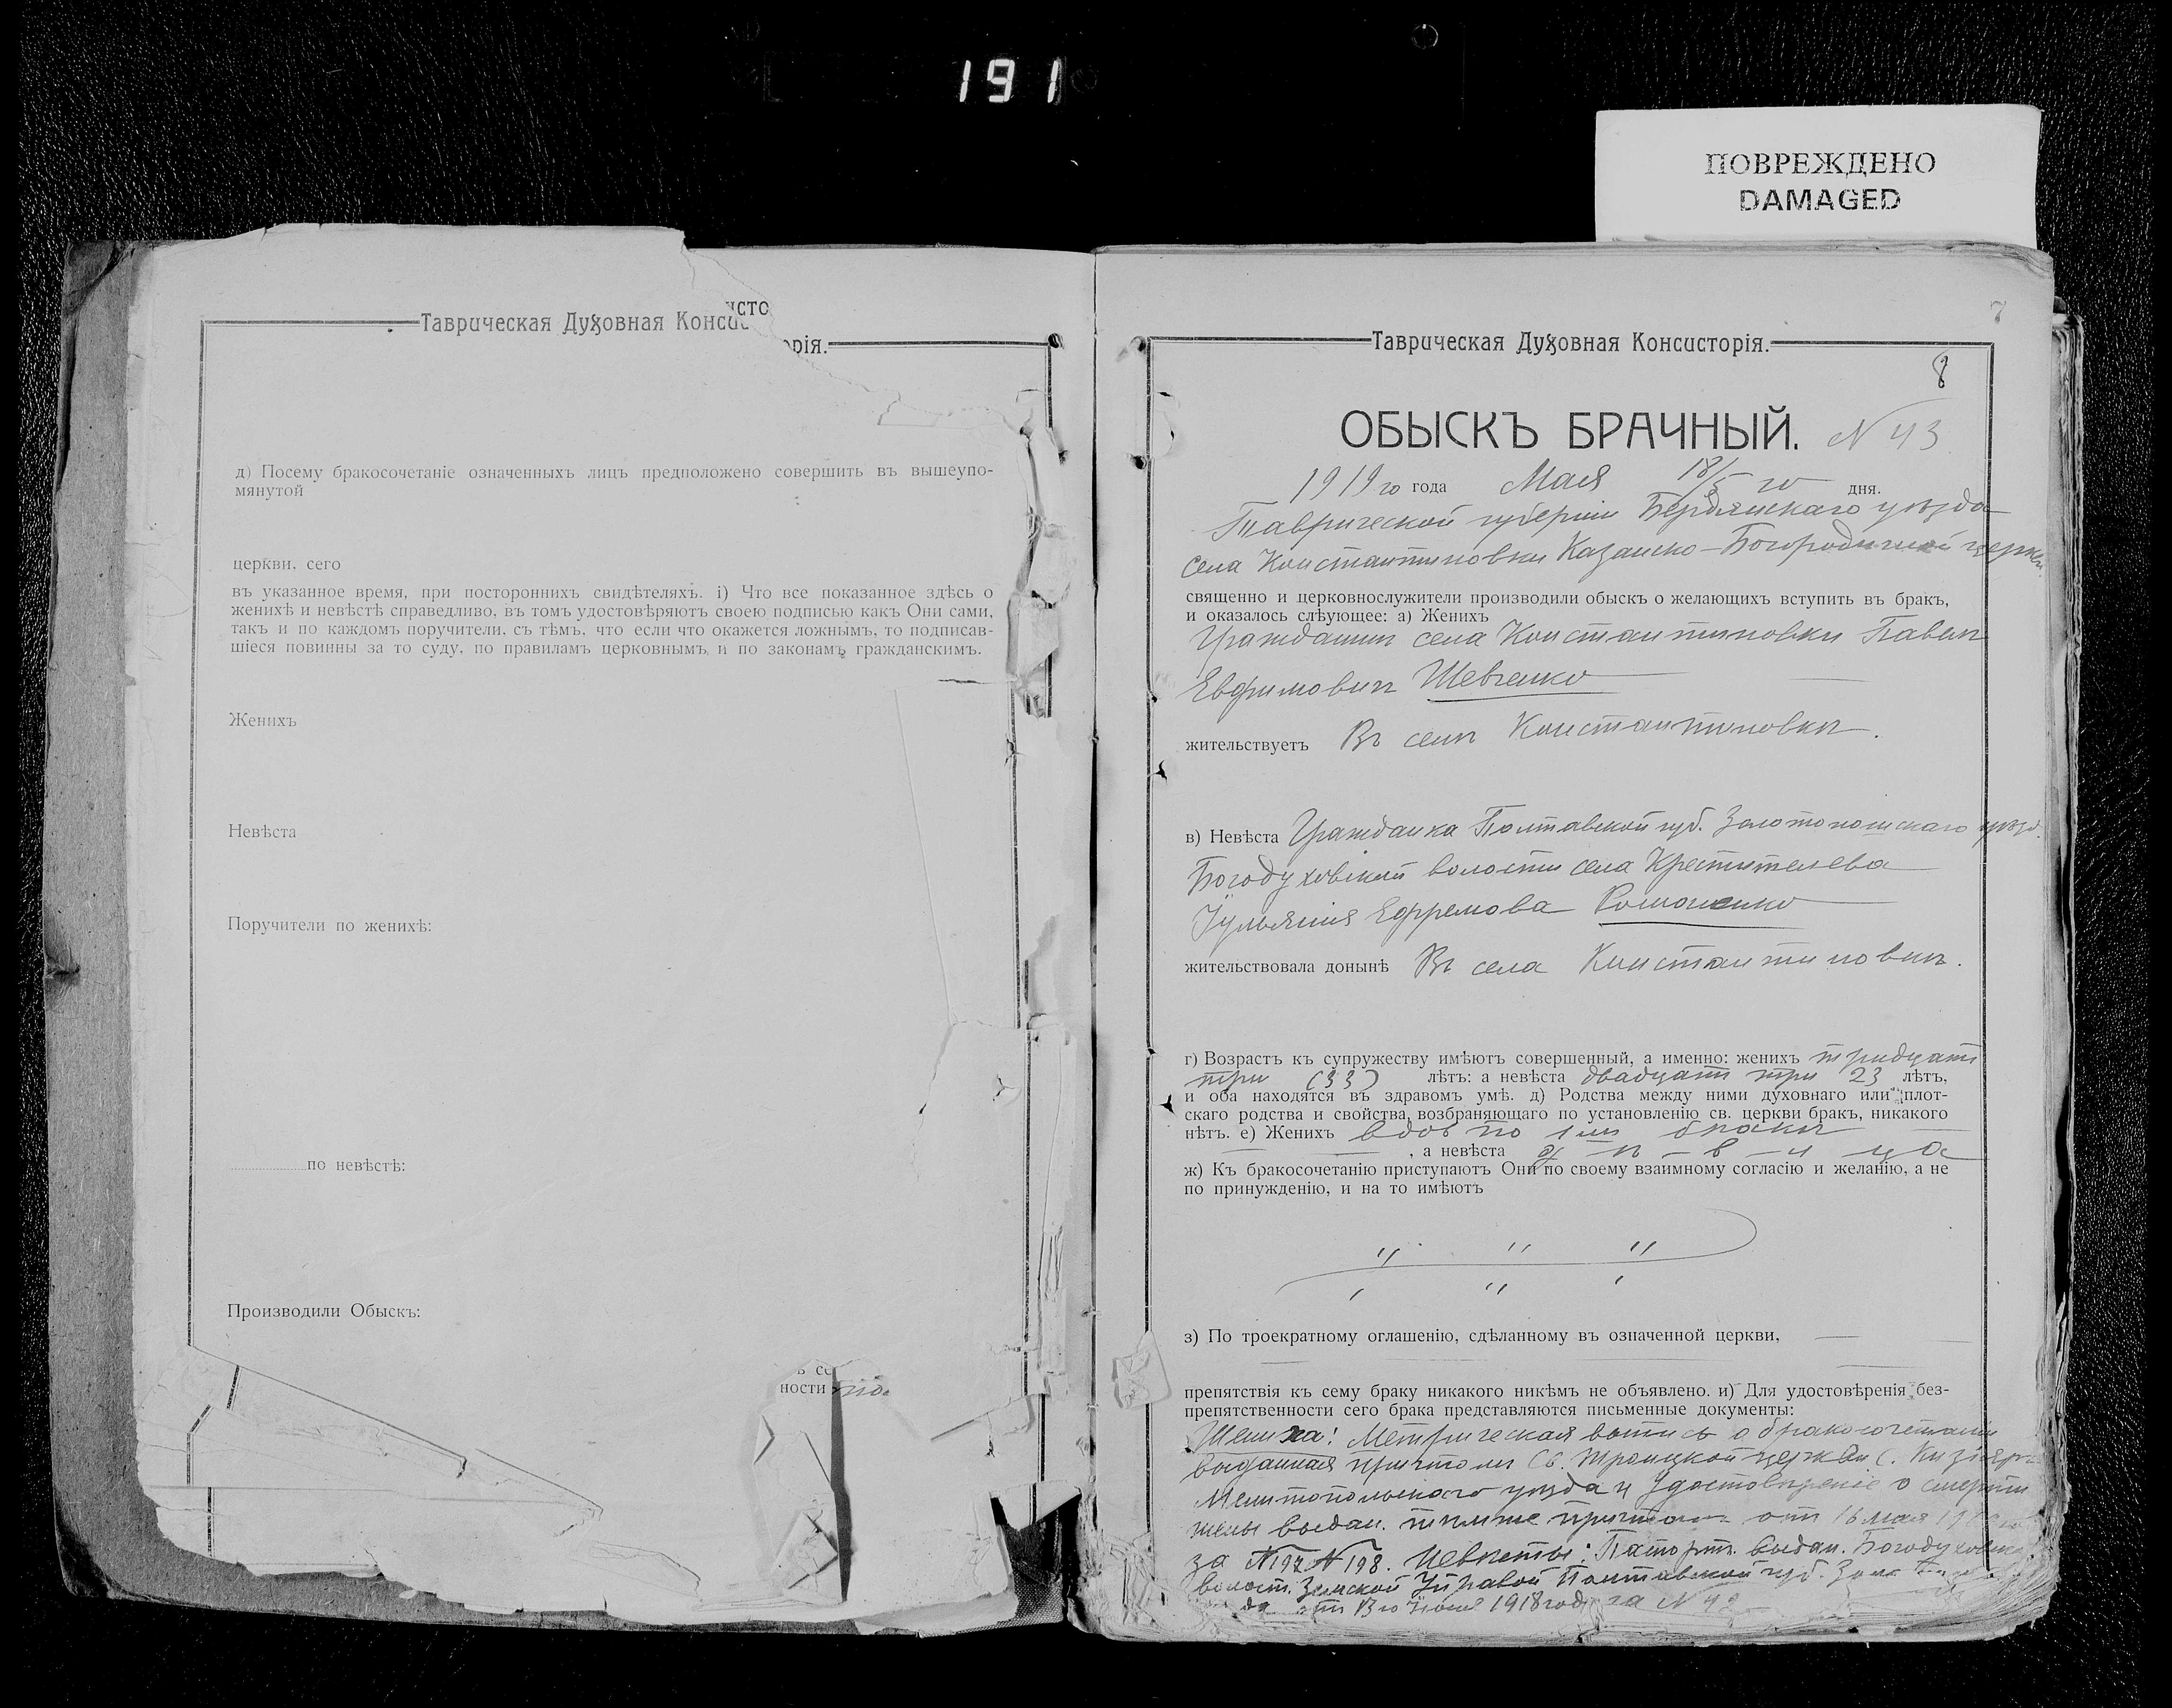 191
ПОВРЕЖДЕНО
DAMAGED
исто
Таврическая Духовная Конси
орія.
д) Посему бракосочетаніе означенныхъ лицъ предположено совершить въ вышеупо-
мянутой
церкви, сего
въ указанное время, при постороннихъ свидѣтеляхъ. і) Что все показанное здѣсь о
женихѣ и невѣстѣ справедливо, въ томъ удостовѣряютъ своею подписью какъ Они сами,
такъ и по каждомъ поручители, съ тѣмъ, что если что окажется ложнымъ, то подписав-
шіеся повинны за то суду, по правиламъ церковнымъ и по законамъ гражданскимъ.
Женихъ
Невѣста
Поручители по женихѣ:
по невѣстѣ:
Производили Обыскъ:
ности
7
Таврическая Духовная Консисторія.
8
ОБЫСКЪ БРАЧНЫЙ. N 43
1919 го года Мая 18/5 го дня.
Таврической губерніи Бердянскаго уѣзда
села Константиновки Казанско-Богородичной церкви.
священно и церковнослужители производили обыскъ о желающихъ вступить въ бракъ,
и оказалось слѣующее: а) Женихъ
Гражданинъ села Константиновки Павелъ
Евфимовичъ Шевченко
жительствуетъ Въ селѣ Константиновкѣ.
в) Невѣста Гражданка Полтавской губ. Золотоношскаго уѣзд.
Богодуховской волости села Крестителева
Іульянія Ефремова
жительствовала донынѣ Въ села Константиновкѣ.
г) Возрастъ къ супружеству имѣютъ совершенный, а именно: женихъ тридцать
три (33) лѣтъ: а невѣста двадцать три 23 лѣтъ,
и оба находятся въ здравомъ умѣ. д) Родства между ними духовнаго или плот-
скаго родства и свойства, возбраняющаго по установленію св. церкви бракъ, никакого
нѣтъ. е) Женихъ вдов по 1 мъ бракѣ
, а невѣста д ѣ - в - и ца
ж) Къ бракосочетанію приступаютъ Они по своему взаимному согласію и желанію, а не
по принужденію, и на то имѣютъ
" " "
' " '
з) По троекратному оглашенію, сдѣланному въ означенной церкви,
препятствія къ сему браку никакого никѣмъ не объявлено. и) Для удостовѣренія без-
препятственности сего брака представляются письменные документы:
Жениха: Метрическая выпись о бракосочетаніи
выданная причтомъ Св. Троицкой церкви с.
Мелитопольскаго уѣзда и Удостовѣреніе о смерти
жены выдан. тѣмже причтомъ отъ 16 мая
за N 197 N 198. Невѣсты: Паспортъ выдан.
волост. Земской Управой Полтавской губ.
1918 год за N